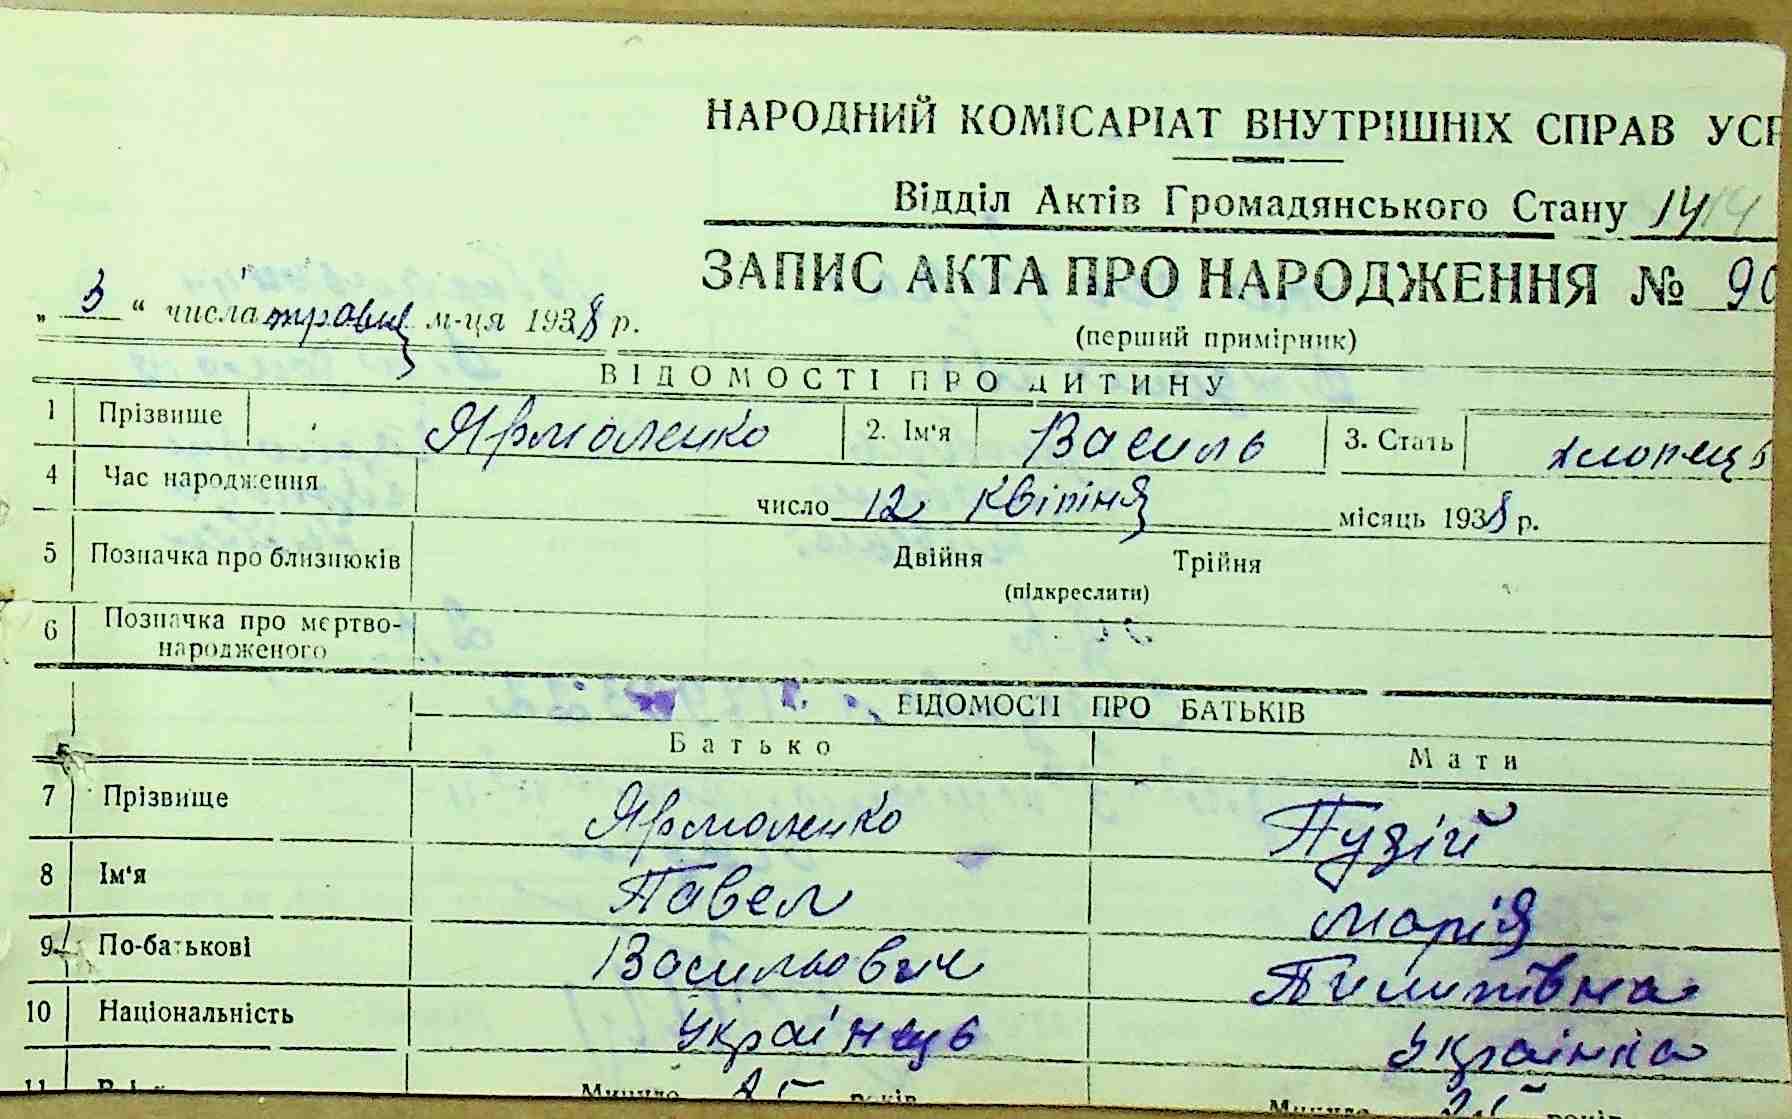 НАРОДНИЙ КОМІСАРІАТ ВНУТРІШНІХ СПРАВ УСР
Відділ Актів Громадянського Стану 14 14
ЗАПИС АКТА ПРО НАРОДЖЕННЯ № 90
„ 3 “ числа травця м-ця 1938 р.
(перший примірник)
ВІДОМОСТІ ПРО ДИТИНУ
1 Прізвище Ярмоленко 2. Ім'я Василь 3. Стать хлопець
4 Час народження число 12 квітня місяць 1938 р.
5 Позначка про близнюків Двійня Трійня
(підкреслити)
6 Позначка про мертво-
народженого
ВІДОМОСТІ ПРО БАТЬКІВ
Батько Мати
7 Прізвище Ярмоленко Пудій
8 Ім'я Павел Марія
9 По-батькові Васильович Пилипівна
10 Національність Українець Українка
11 Минуло 25 років Минуло 25 років